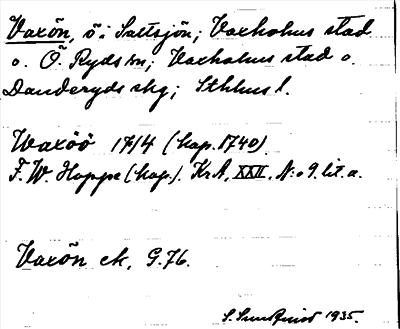 Vaxön, ö i Saltsjön; Vaxholms stad
o. Ö. Ryds sn; Vaxholms stad o.
Danderyds skg; Sthlms l.
Waxöö 1714 (kop. 1740)
F. W. Hoppe (kop.). Kr A, XXII, N:o 9 lit. a.
Vaxön ek, G. 76.
S. Sundquist 1935.